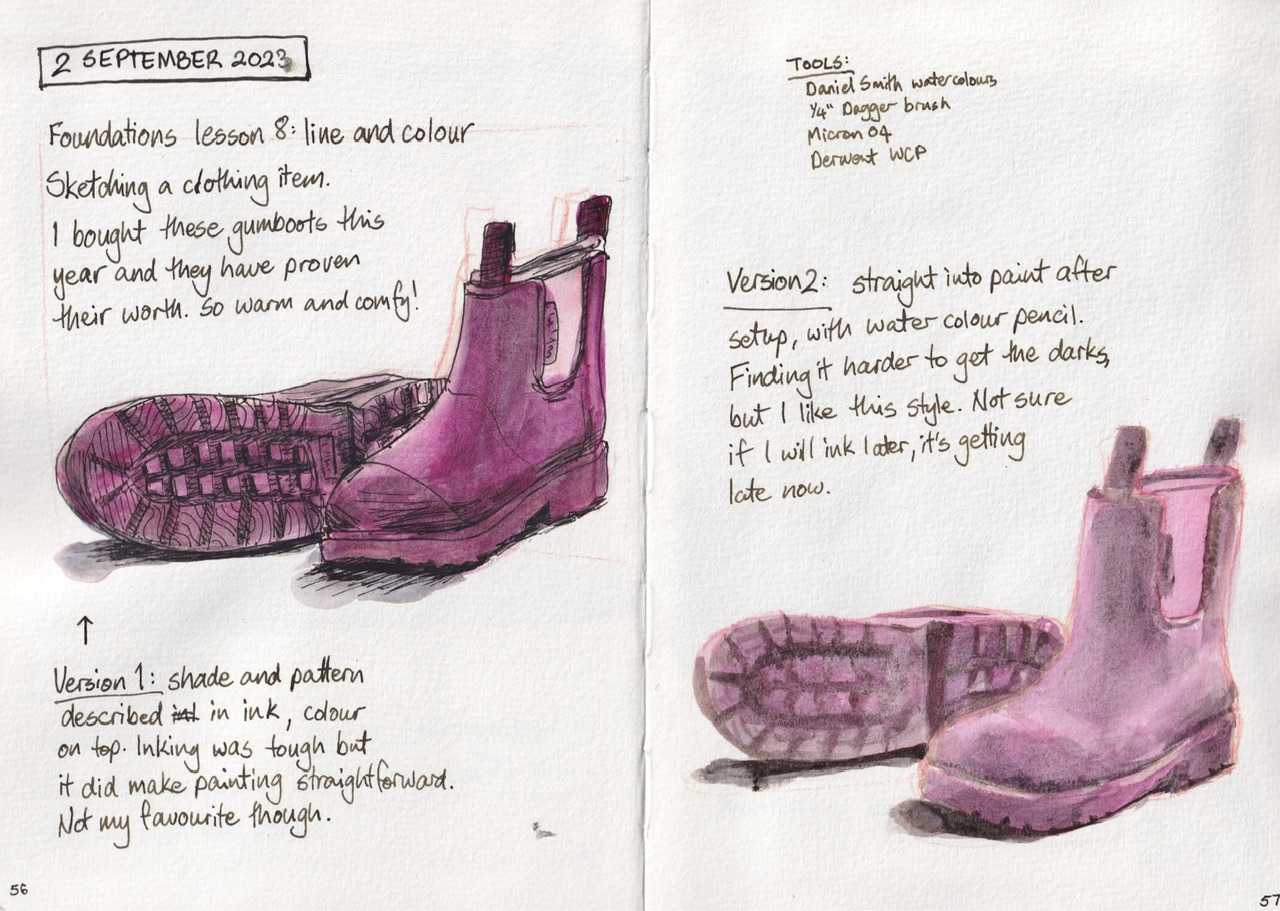 2 SEPTEMBER 2023
Foundations lesson 8: line and colour
Sketching a clothing item.
I bought these gumboots this
year and they have proven
their worth. So warm and comfy!
↑
Version 1: shade and pattern
described int in ink, colour
on top. Inking was tough but
it did make painting straightforward.
Not my favourite though.
56
TOOLS:
Daniel Smith watercolours
1/4" Dagger brush
Micron 04
Derwent WCP
Version 2: straight into paint after
setup, with water colour pencil.
Finding it harder to get the darks,
but I like this style. Not sure
if I will ink later, it's getting
late now.
57